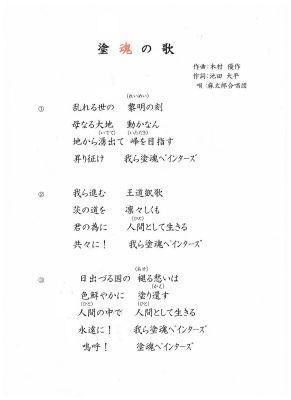 塗魂の歌
作曲:木村 優作
作詞:池田 大平
唄:麻太郎合唱団
①
乱れる世の 黎明の刻
(れいめい)
母なる大地 動かなん
地から湧出て 峰を目指す
(いでて) (いただき)
昇り征け 我ら塗魂ペインターズ
②
我ら進む 王道凱歌
茨の道を 凛々しくも
君の為に 人間として生きる
(ひと)
共々に! 我ら塗魂ペインターズ
③
日出づる国の 褪る愁いは
(あせ)
色鮮やかに 塗り還す
(かえ)
人間の中で 人間として生きる
(ひと) (ひと)
永遠に! 我ら塗魂ペインターズ
嗚呼! 塗魂ペインターズ